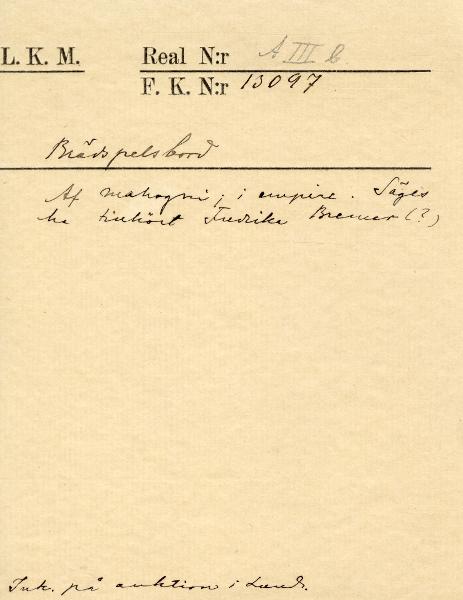 L. K. M. Real N:r A III b
F. K. N:r 13097
Brädspelsbord
Af mahogni; i empire. Säges
ha tillhört Fredrika Bremer (?)
Ink. på auktion i Lund.